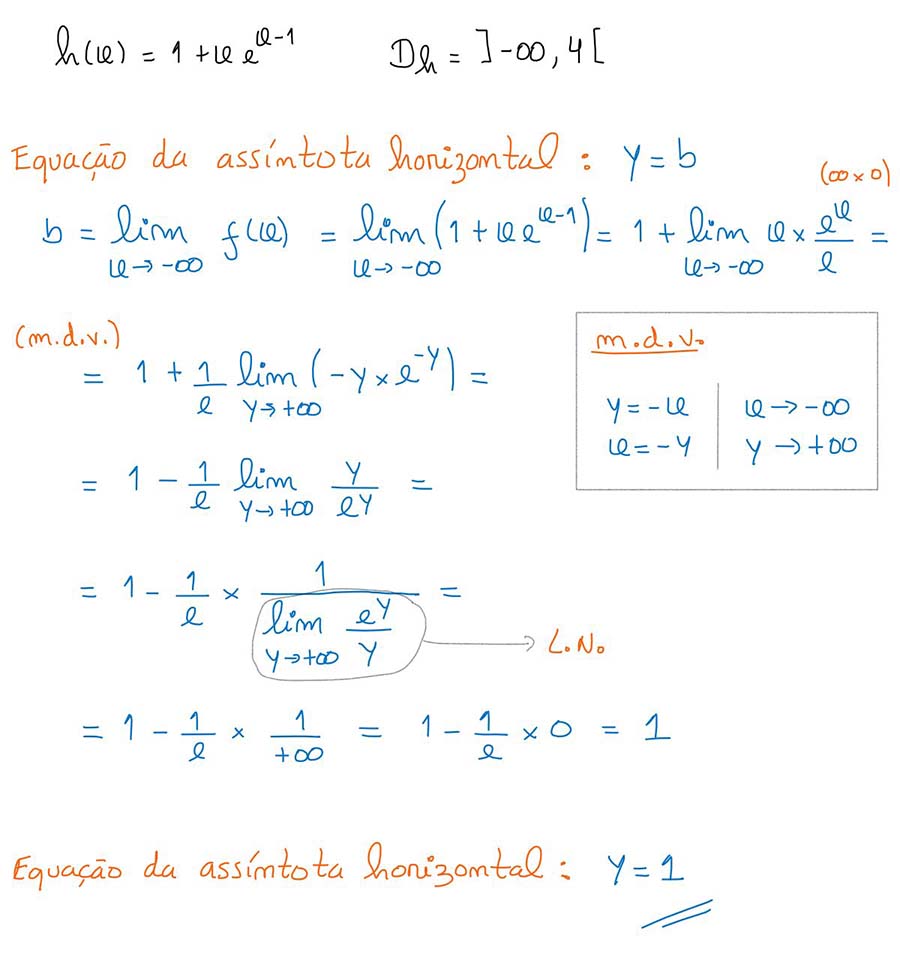 h(x) = 1 + x e^(x-1)   Dh = ]-∞, 4[
Equação da assíntota horizontal : y = b
(∞ × 0)
b = lim_(x→-∞) f(x) = lim_(x→-∞) (1 + x e^(x-1)) = 1 + lim_(x→-∞) x × e^x/e =
(m.d.v.)
= 1 + 1/e lim_(y→+∞) (-y × e^(-y)) =
m.d.v.
y = -x | x → -∞
x = -y | y → +∞
= 1 - 1/e lim_(y→+∞) y/e^y =
= 1 - 1/e × 1/(lim_(y→+∞) e^y/y) =
→ L.N.
= 1 - 1/e × 1/+∞ = 1 - 1/e × 0 = 1
Equação da assíntota horizontal : y = 1